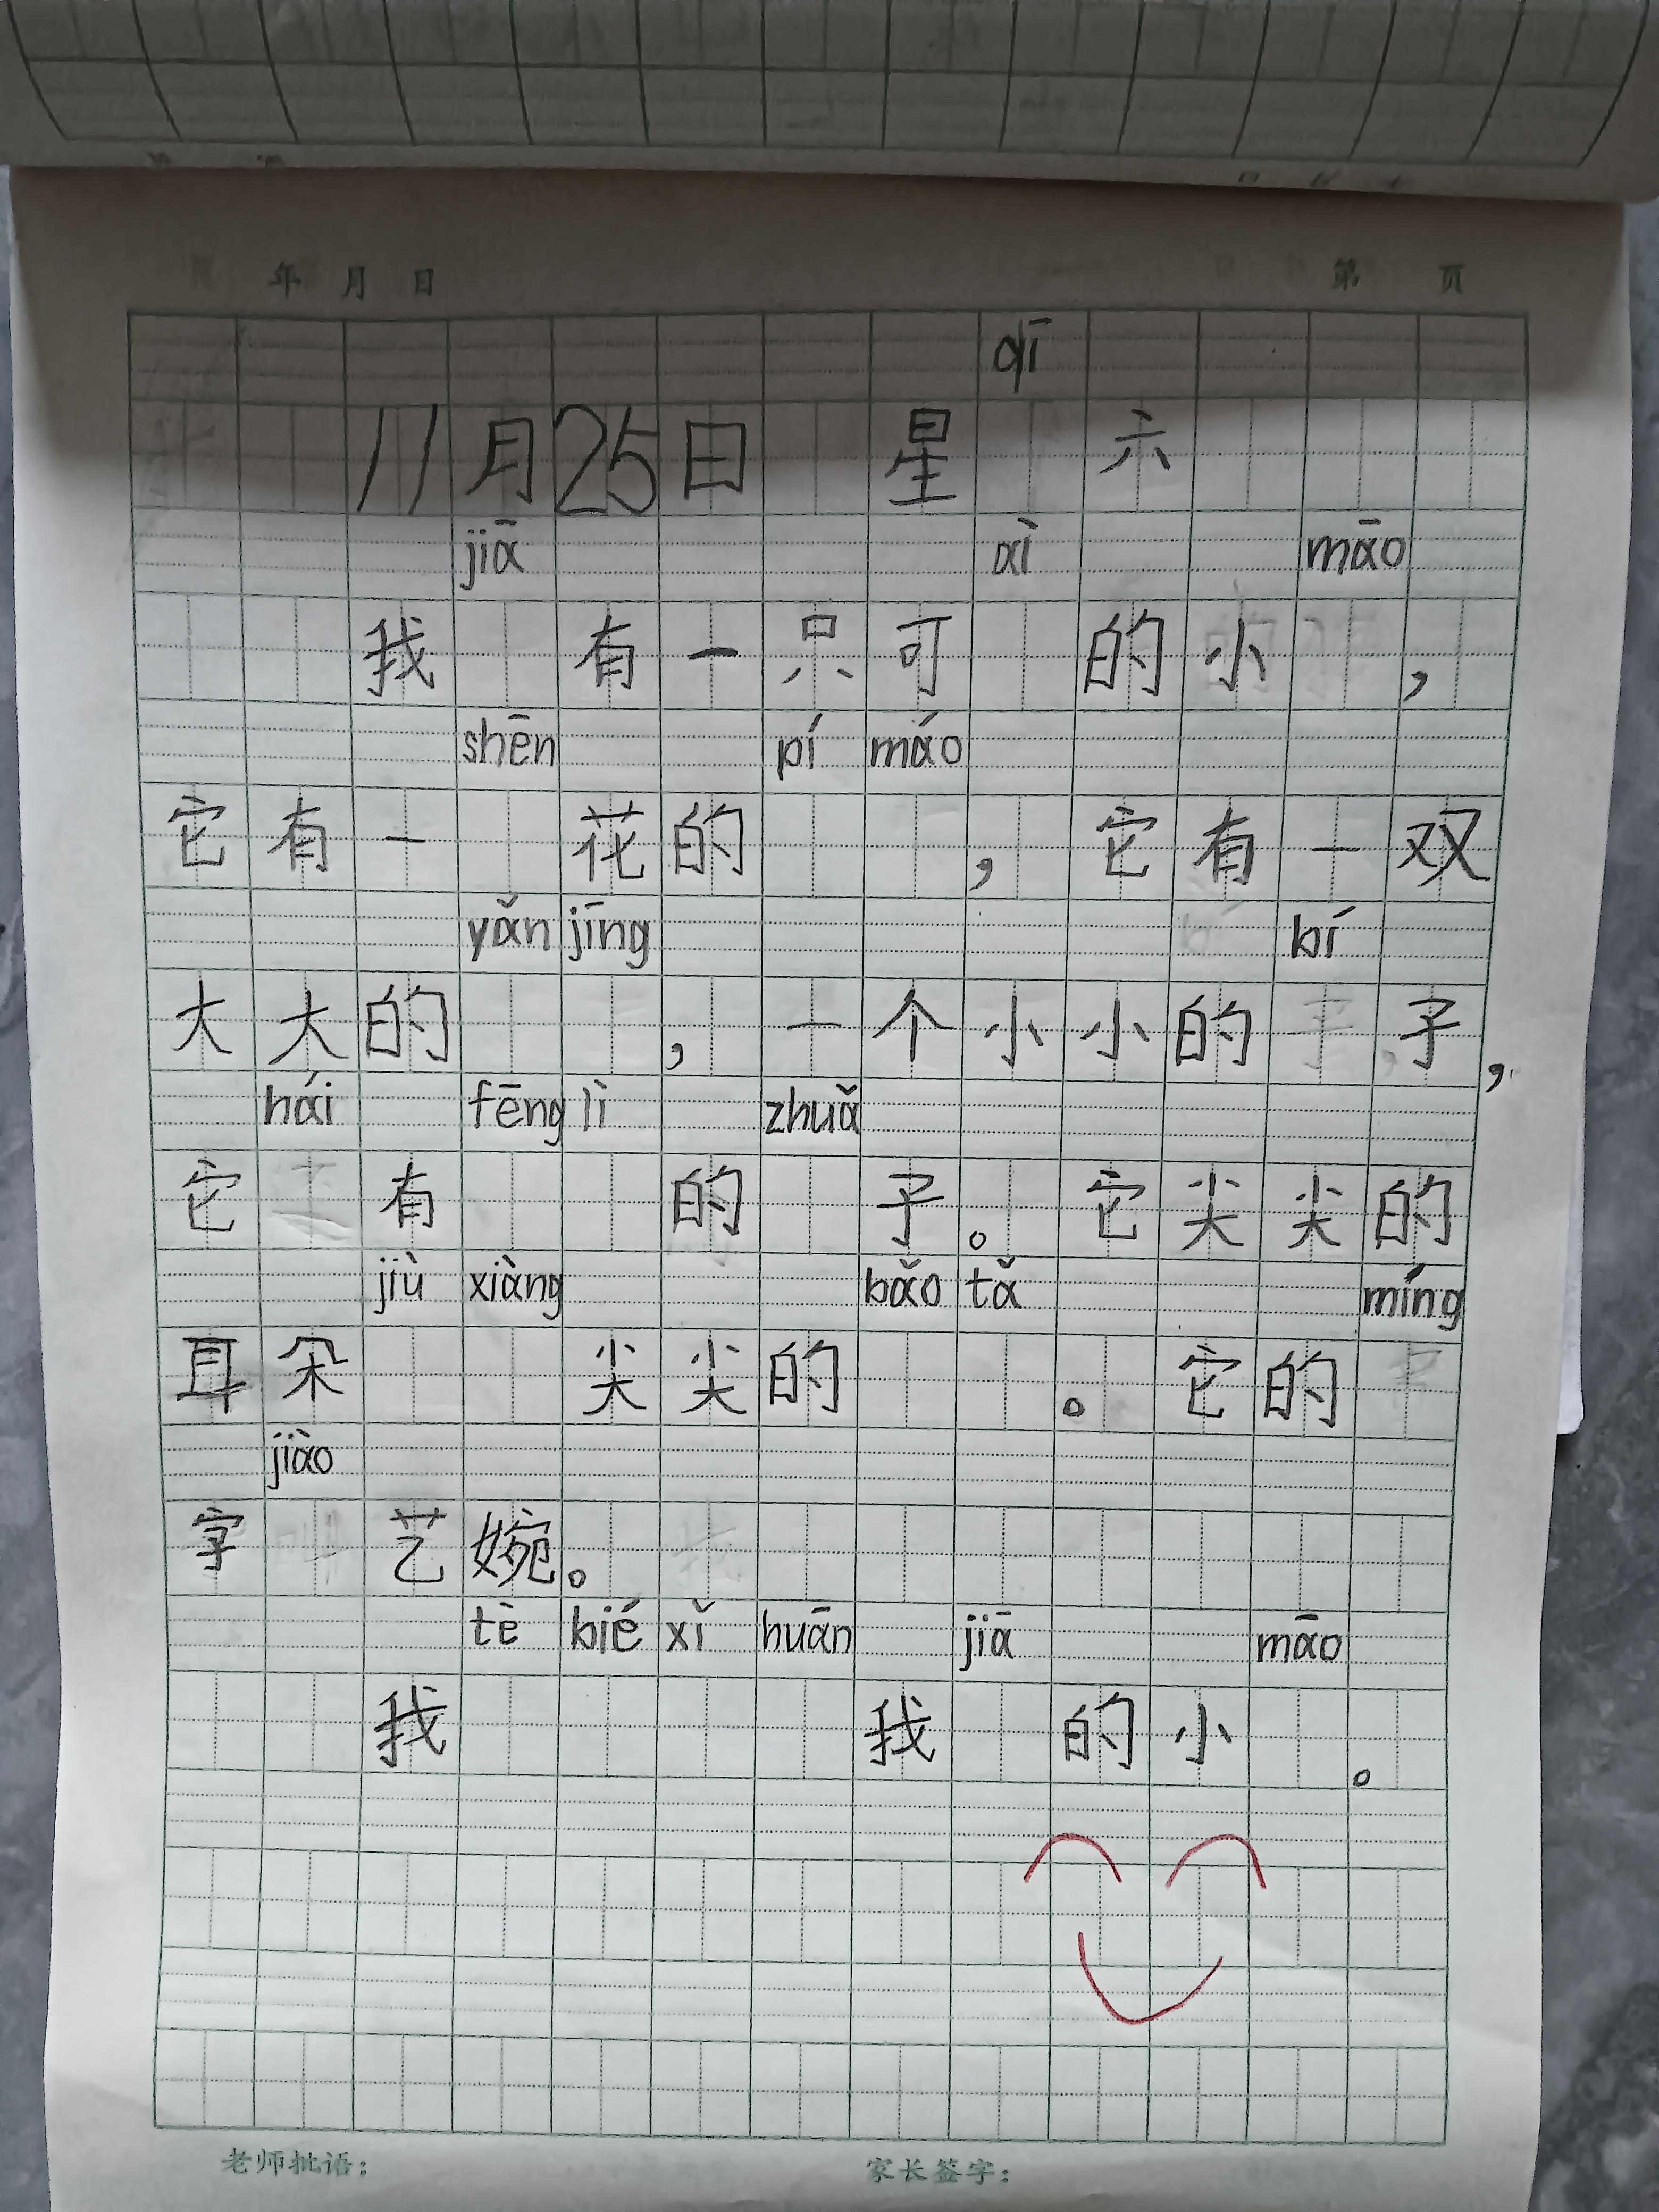 年 月 日 第 页
qī
11月25日 星 六
jiā ài māo
我 有一只可 的小 ，
shēn pí máo
它有一 花的 ，它有一双
yǎn jīng bí
大大的 ，一个小小的 子，
hái fēng lì zhuǎ
它 有 的 子。它尖尖的
jiù xiàng bǎo tǎ míng
耳朵 尖尖的 。它的
jiào
字 艺婉。
tè bié xǐ huān jiā māo
我 我 的小 。
老师批语： 家长签字：